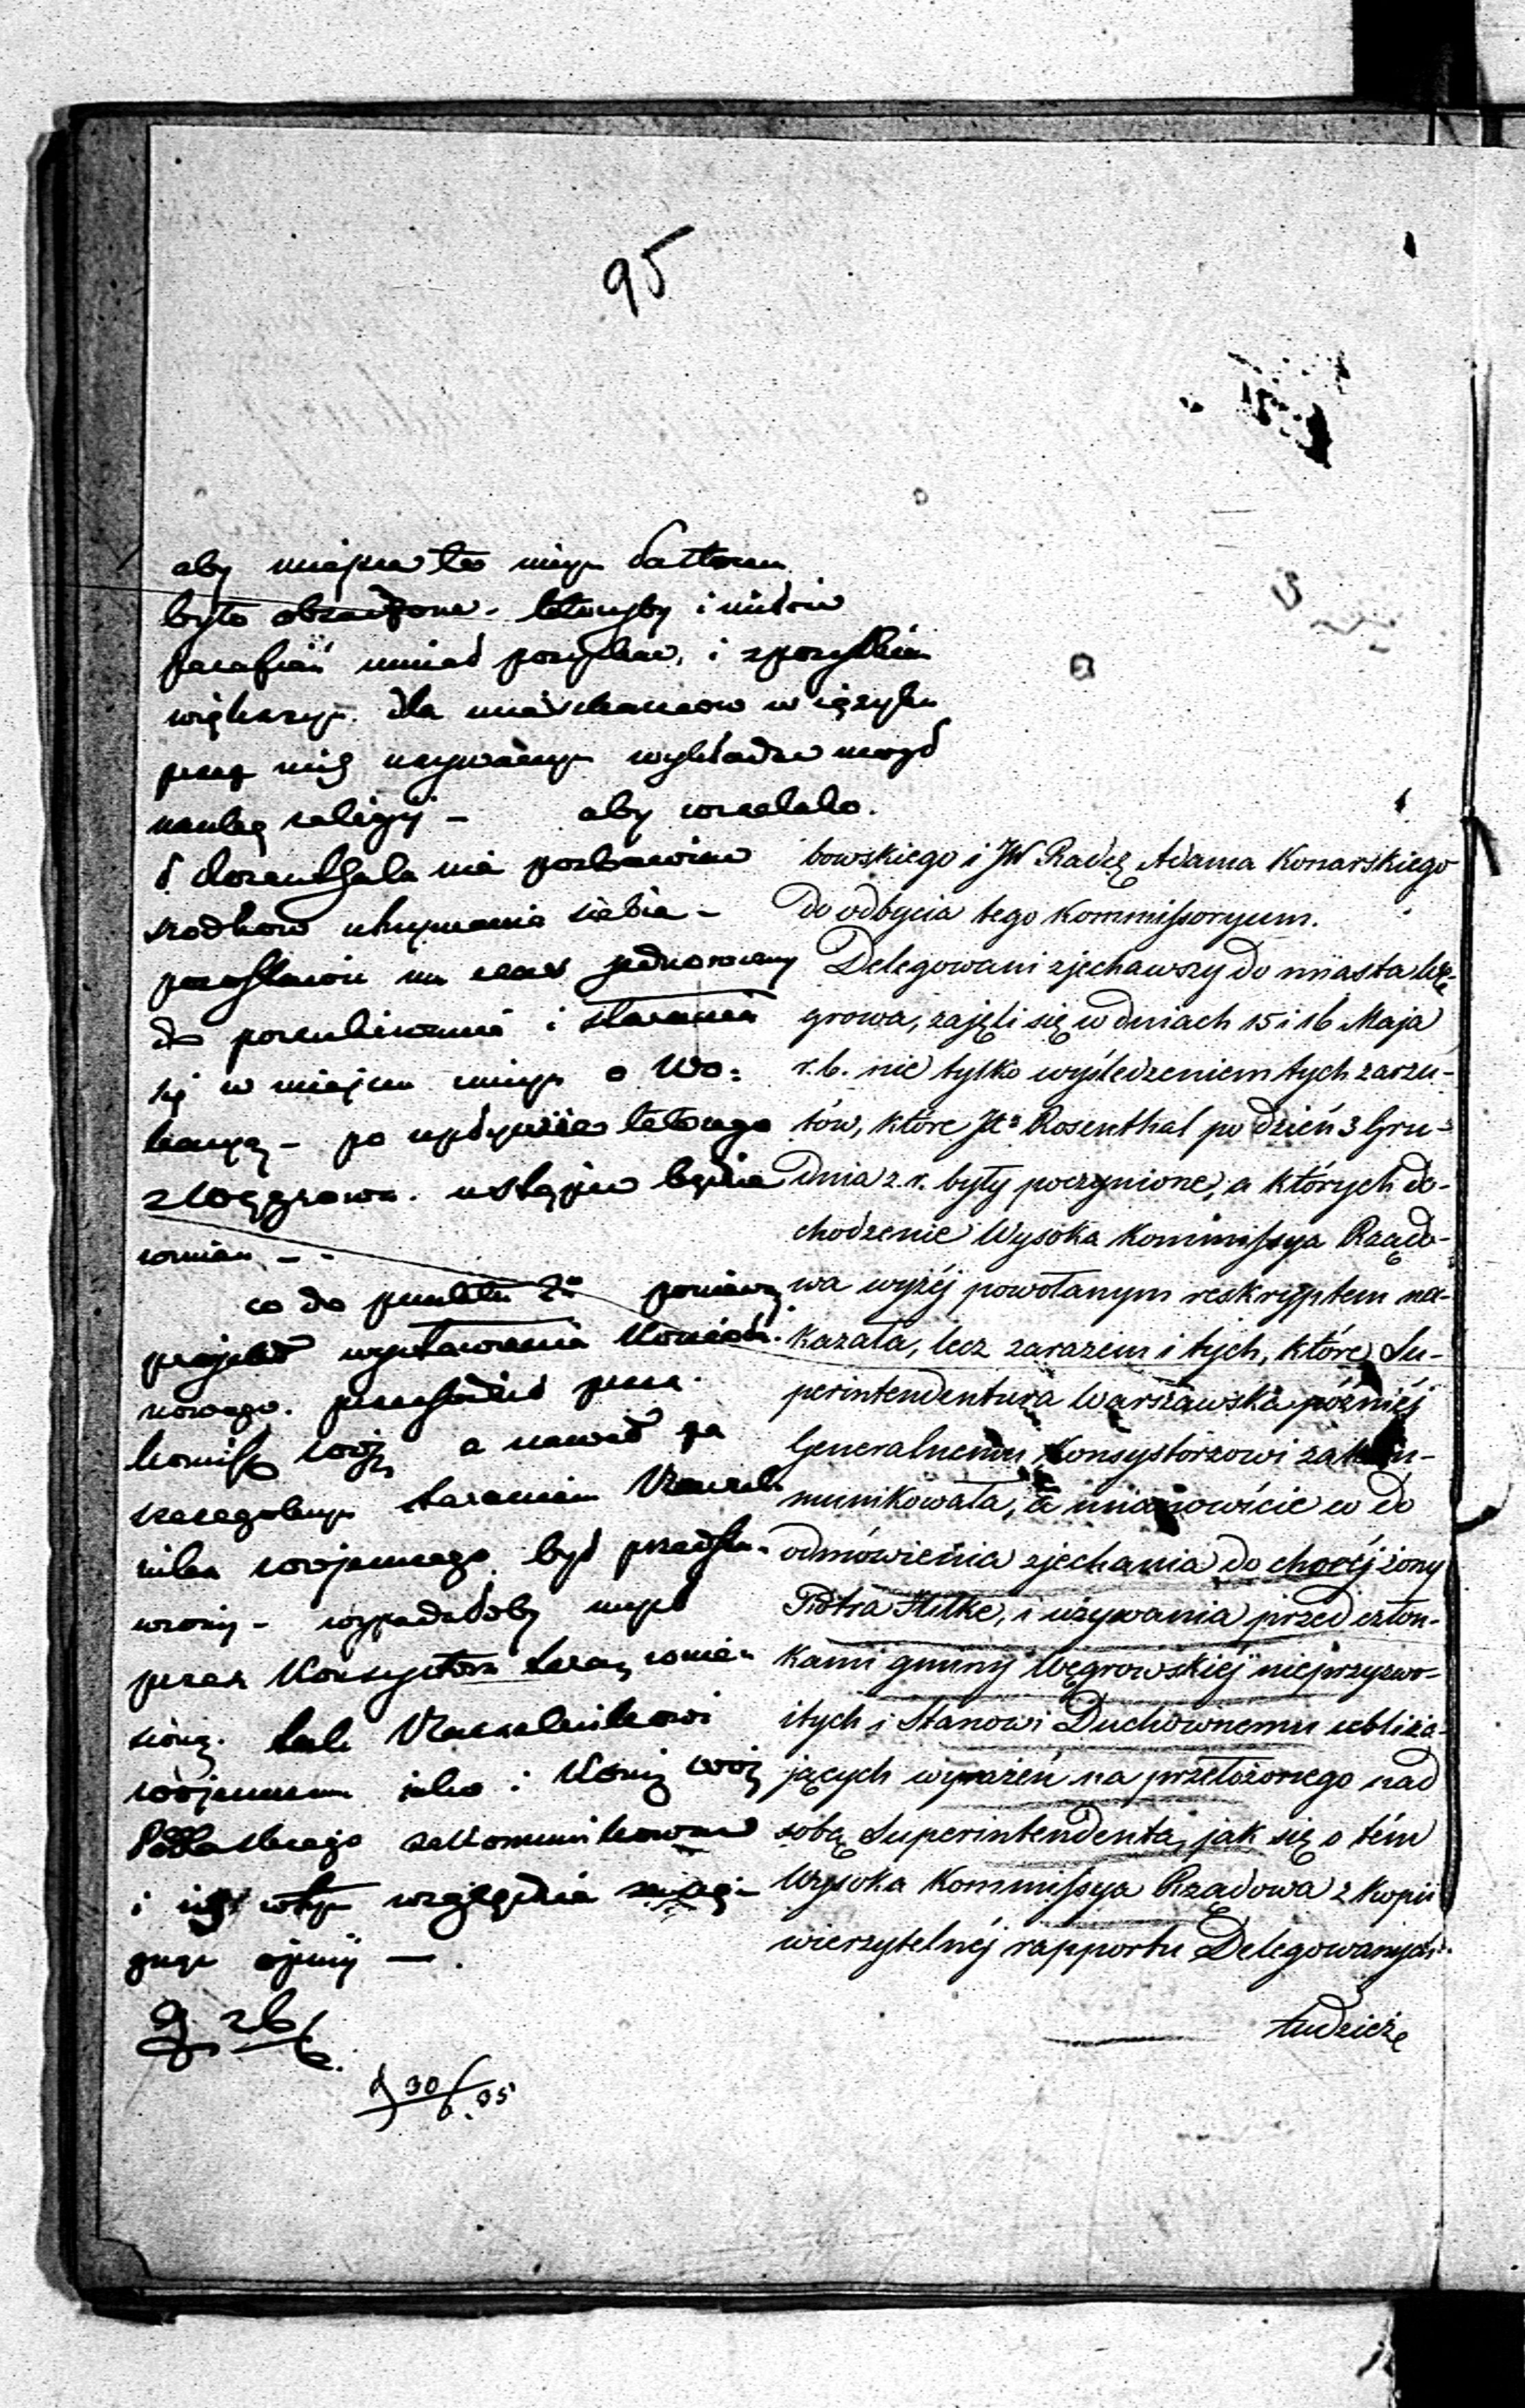 95
aby miejsce to innym Pastorem
było obsadzone. któryby i miłość
parafian umiał pozyskać, i z pożytkiem
większym dla mieszkańców w języku
przez nich używanym wykładać mógł
naukę religij – aby wszelako
Rosenthala nie pozbawiać
srodkow utrzymania siebie –
pozostawić mu czas jednoroczny
do poszukiwania i starania
się w miejscu innym o wo-
kancyą – po upływie którego
z Węgrowa ustąpić będzie
winien –
co do punktu 2o ponieważ
projekt wystawienia Kościoła
nowego przesłany przez
Komiss Wojj a nawet za
szczególnym staraniem Naczel-
nika wojennego był przedsta-
wiony – wypadałoby mysl
przez Konsystorz teraz wznie-
sioną tak Naczelnikowi
wojennemu jako i Komis Wojj
Podlaskiego zakommunikować
i ich w tym względzie zasięg-
nąć opinij –
26/6
30/6.35
bowskiego i JW Radcę Adama Konarskiego
do odbycia tego Kommissoryum.
Delegowani zjechawszy do miasta Wę-
growa, zajęli się w dniach 15 i 16 Maja
r. b. nie tylko wyśledzeniem tych zarzu-
tów, które Xs Rosenthal po dzień 3 Gru-
dnia z. r. były poczynione, a których do-
chodzenie Wysoka Kommissya Rządo-
wa wyżéj powołanym reskryptem na-
kazała, lecz zarazem i tych, które Su-
perintendentura Warszawska późniéj
Generalnemu Konsystorzowi zakom-
munikowała, a mianowicie co do
odmówienia zjechania do choréj żony
Piotra Hilke, i używania przed człon-
kami gminy Węgrowskiéj nieprzyzwo-
itych i Stanowi Duchownemu ubliża-
jących wyrażeń na przełożonego nad
sobą Superintendenta, jak się o tém
Wysoka Kommissya Rządowa z Kopii
wierzytelnéj rapportu Delegowanych
tudzież